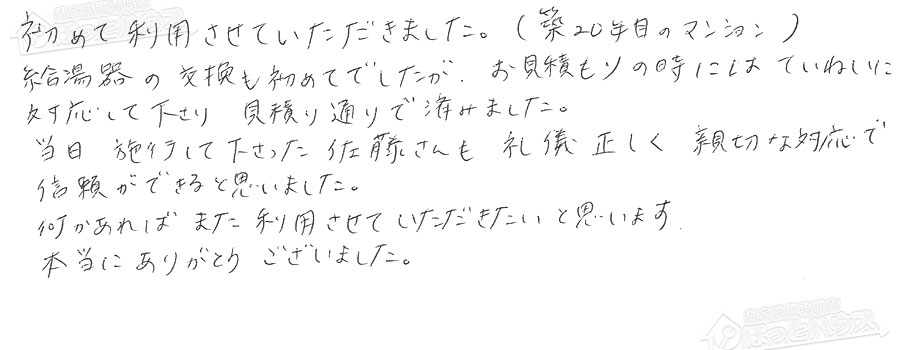 初めて利用させていただきました。(築20年目のマンション)
給湯器の交換も初めてでしたが、お見積もりの時にはていねいに
対応して下さり 見積り通りで済みました。
当日 施行して下さった佐藤さんも 礼儀正しく 親切な対応で
信頼ができると思いました。
何かあれば また利用させていただきたいと思います
本当にありがとうございました。
ほっとハウス